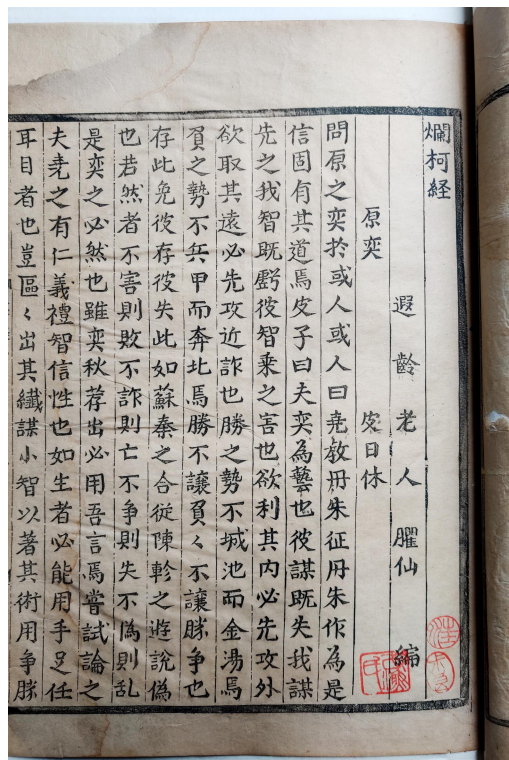 爛柯経
遐齡老人臞仙編
原奕　皮日休
問原之奕於或人或人曰堯教丹朱征丹朱作為是
信固有其道焉皮子曰夫奕為藝也彼謀既失我謀
先之我智既虧彼智乘之害也欲利其内必先攻外
欲取其遠必先攻近詐也勝之勢不城池而金湯焉
負之勢不兵甲而奔北焉勝不讓負〻不讓勝争也
存此免彼存彼失此如蘇秦之合従陳軫之遊說偽
也若然者不害則敗不詐則亡不争則失不偽則乱
是奕之必然也雖奕秋荐出必用吾言焉嘗試論之
夫堯之有仁義禮智信性也如生者必能用手足任
耳目者也豈區〻出其纎謀小智以著其術用争勝